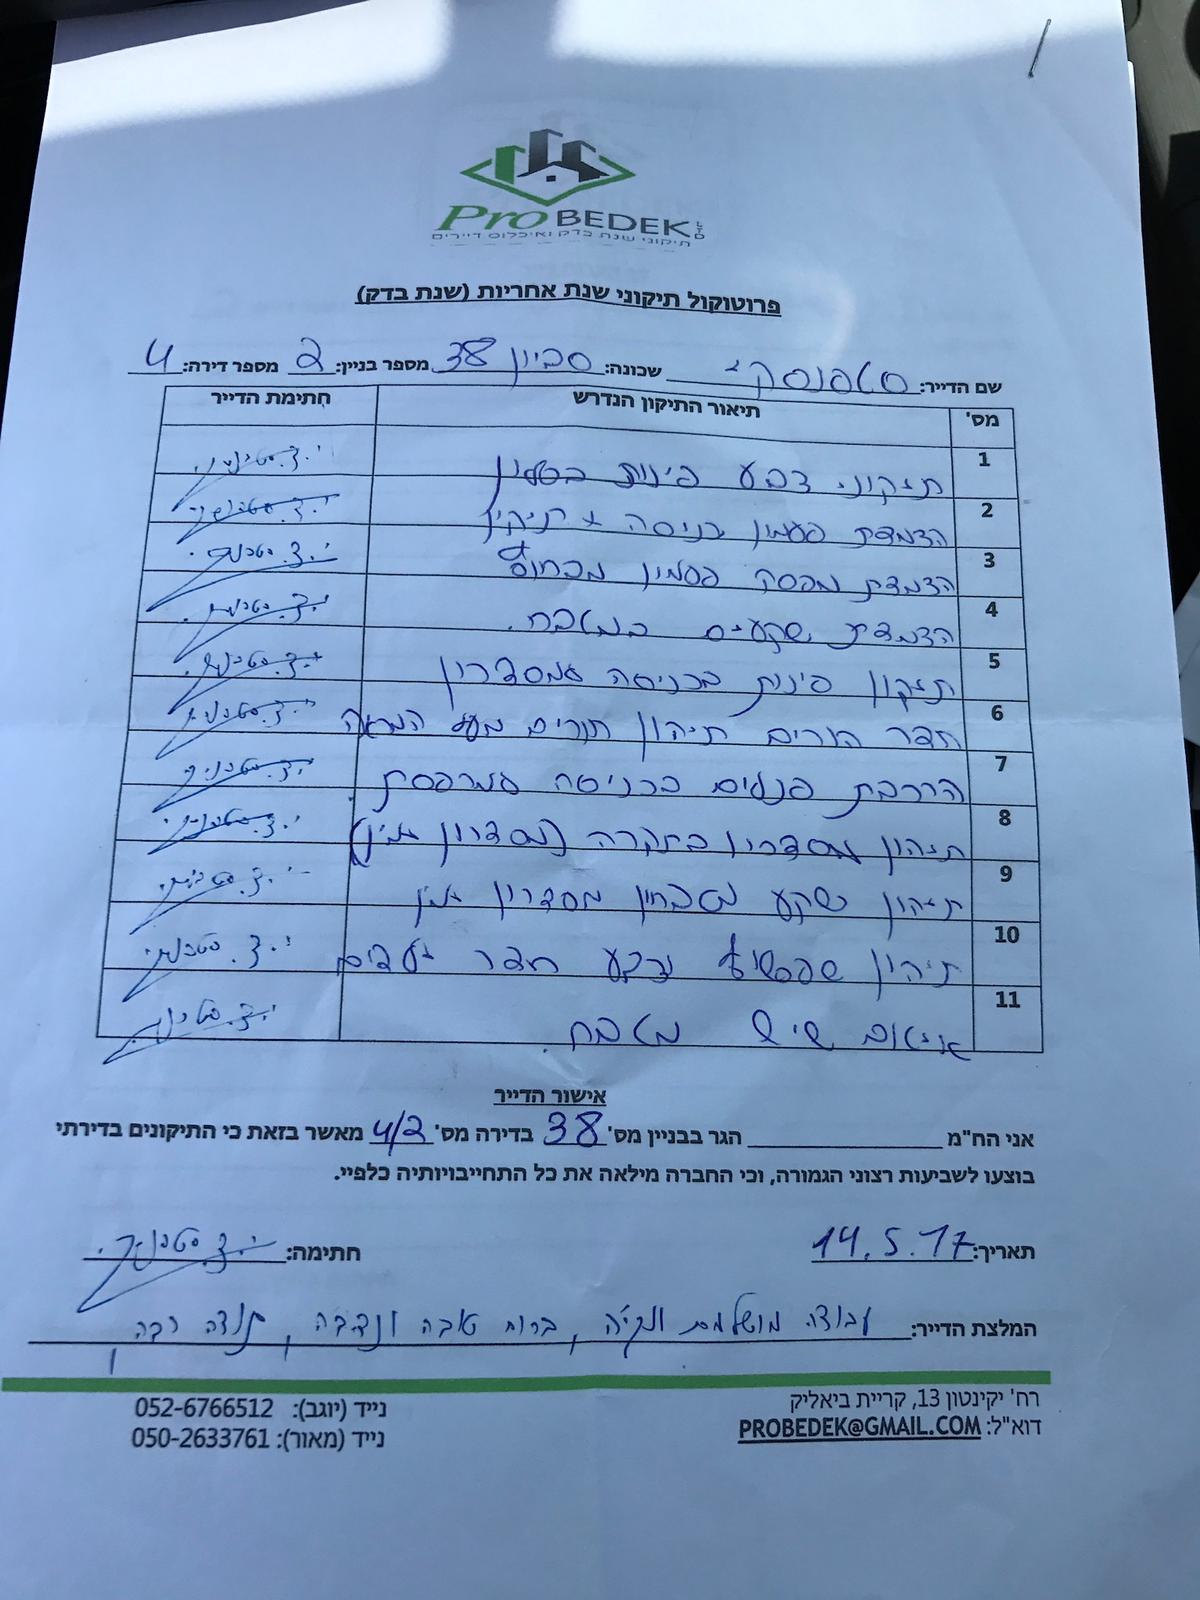 Pro BEDEK LTD
תיקוני שנת בדק ואיכלוס דיירים
פרוטוקול תיקוני שנת אחריות (שנת בדק)
שם הדייר: שכונה: סביון 38 מספר בניין: 2 מספר דירה: 4
מס' תיאור התיקון הנדרש חתימת הדייר
1 תיקוני צבע פינות בסלון
2 הצמדת פעמון כניסה + תיקון
3 הצמדת מפסק פעמון מבחוץ
4 הצמדת שקעים במטבח.
5 תיקון פינות בכניסה למסדרון
6 חדר הורים תיקון חורים מעל המראה
7 הרכבת פנלים בכניסה למרפסת
8 תיקון מסדרון בתקרה (מסדרון לבן)
9 תיקון שקע מסדרון
10 תיקון שפשוף צבע חדר ילדים
11 איטום שיש מטבח.
אישור הדייר
אני הח"מ הגר בבניין מס' 38 בדירה מס' 4/2 מאשר בזאת כי התיקונים בדירתי
בוצעו לשביעות רצוני הגמורה, וכי החברה מילאה את כל התחייבויותיה כלפיי.
תאריך: 14.5.17 חתימה:
המלצת הדייר: עבודה מושלמת ונקיה, ברוח טובה ונדיבה, תודה רבה
רח' יקינטון 13, קריית ביאליק נייד (יוגב): 052-6766512
דוא"ל: PROBEDEK@GMAIL.COM נייד (מאור): 050-2633761